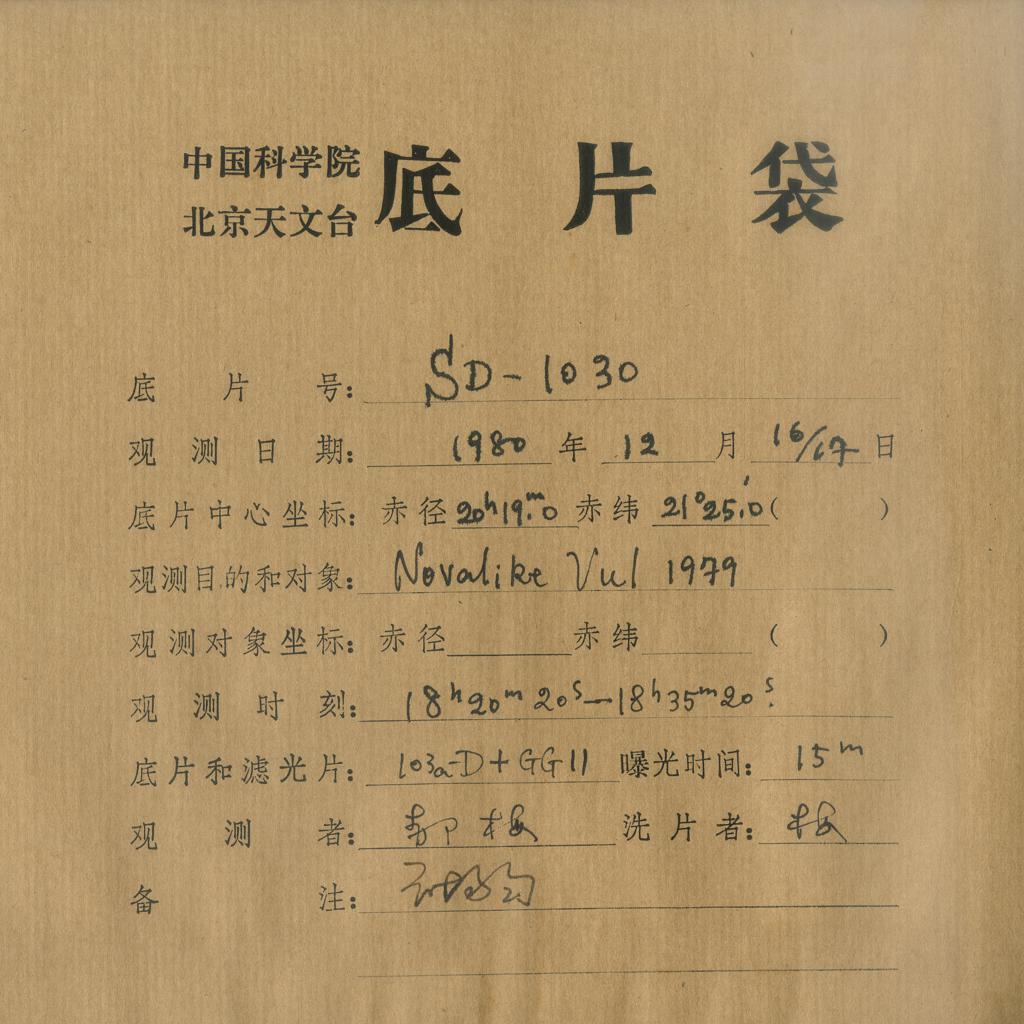 中国科学院
北京天文台
底片袋
底片号: SD-1030
观测日期: 1980年12月16/17日
底片中心坐标: 赤径20h19m.0 赤纬21°25'.0( )
观测目的和对象: Novalike Vul 1979
观测对象坐标: 赤径 赤纬 ( )
观测时刻: 18h20m20s—18h35m20s.
底片和滤光片: 103a-D+GG11 曝光时间: 15m
观测者: 郝 梅 洗片者: 梅
备注: